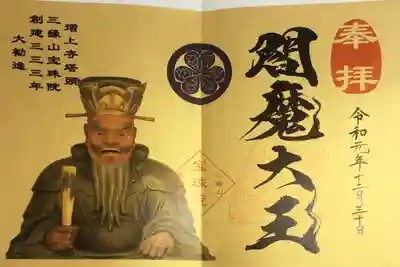 奉拝
令和元年十二月三十日
閻魔大王
増上寺塔頭
三縁山宝珠院
創建三三三年
大勧進